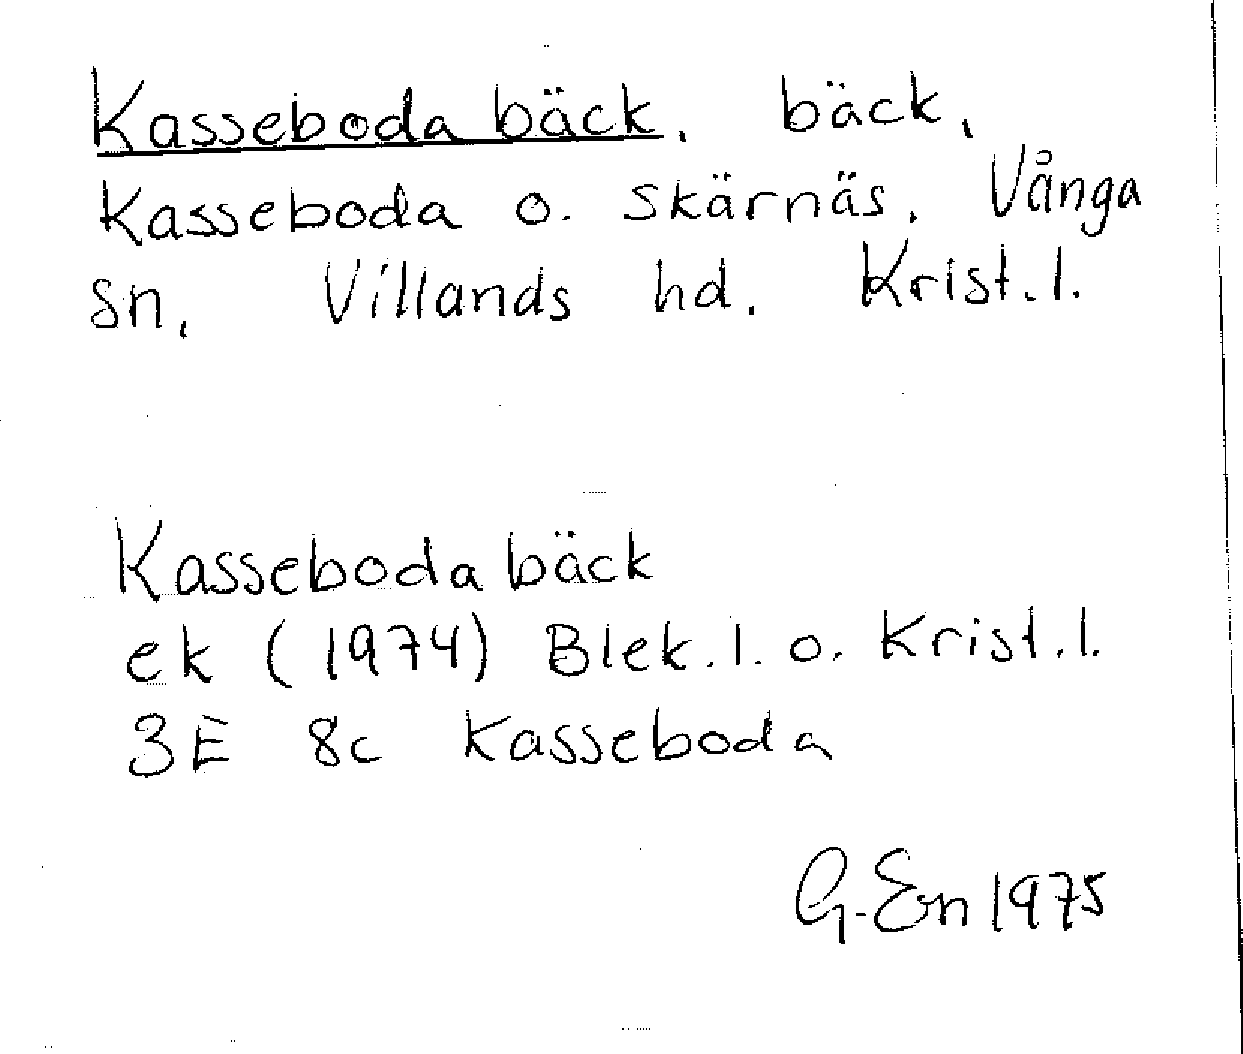 Kasseboda bäck. bäck,
Kasseboda o. Skärnäs, Vånga
sn, Villands hd. Krist.l.
Kasseboda bäck
ek (1974) Blek.l. o. Krist.l.
3E 8c Kasseboda
G. En 1975